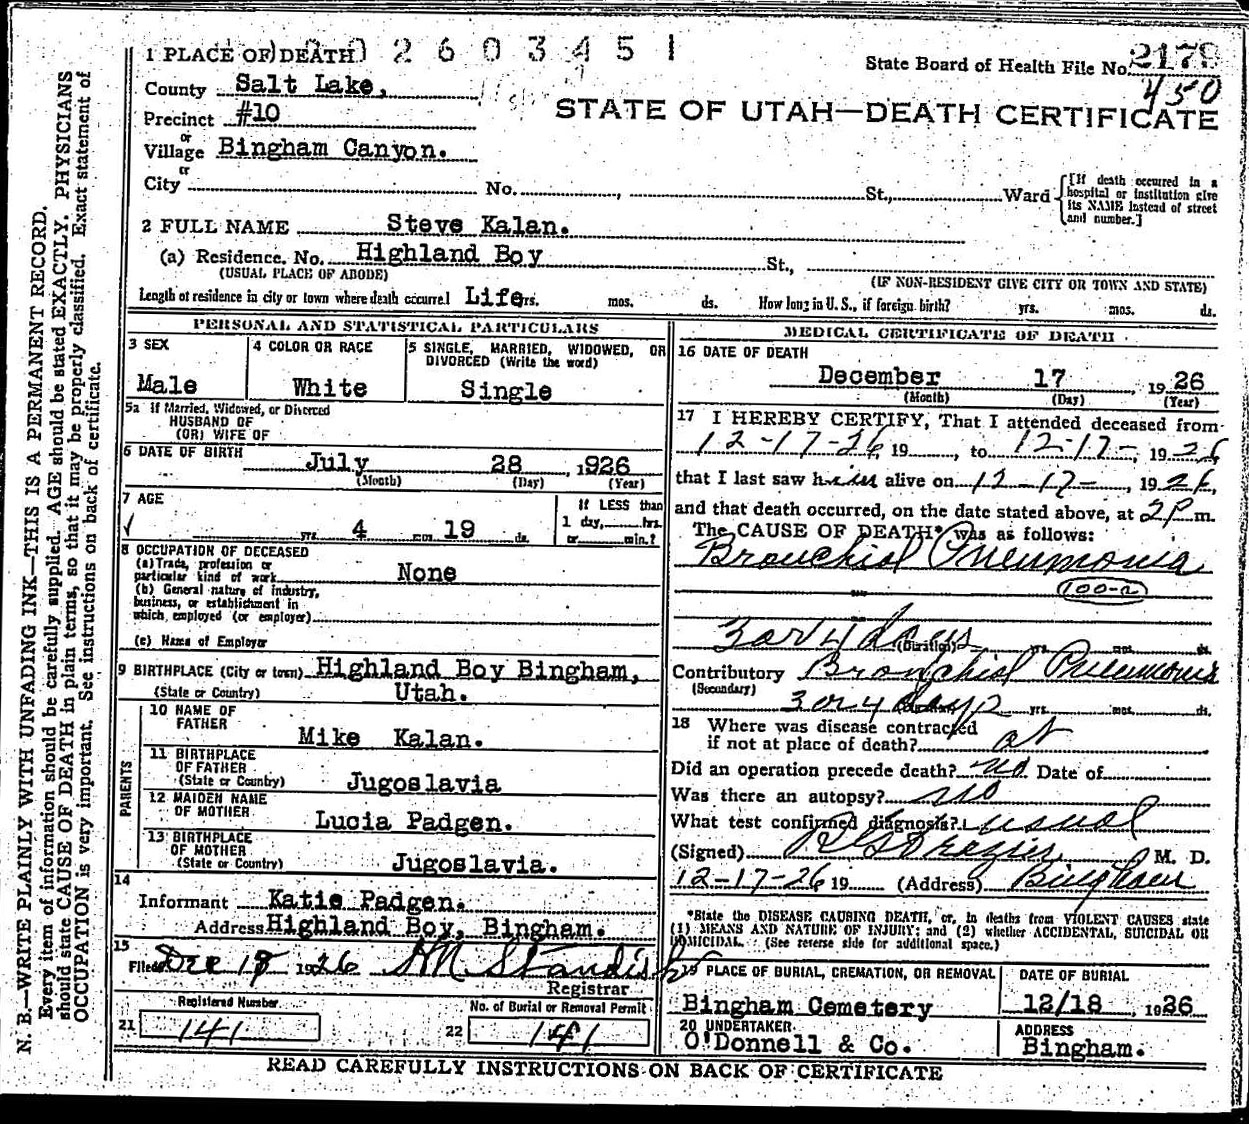 N. B.—WRITE PLAINLY WITH UNFADING INK—THIS IS A PERMANENT RECORD.
Every item of information should be carefully supplied. AGE should be stated EXACTLY. PHYSICIANS
should state CAUSE OF DEATH in plain terms, so that it may be properly classified. Exact statement of
OCCUPATION is very important. See instructions on back of certificate.
2603451
1 PLACE OF DEATH
State Board of Health File No. 2179
450
County Salt Lake,
STATE OF UTAH—DEATH CERTIFICATE
Precinct #10
or
Village Bingham Canyon.
or
City No. , St., Ward
[If death occurred in a
hospital or institution give
its NAME instead of street
and number.]
2 FULL NAME Steve Kalan.
(a) Residence. No. Highland Boy St.,
(USUAL PLACE OF ABODE) (IF NON-RESIDENT GIVE CITY OR TOWN AND STATE)
Length of residence in city or town where death occurred Life rs. mos. ds. How long in U. S., if foreign birth? yrs. mos. ds.
PERSONAL AND STATISTICAL PARTICULARS
3 SEX
Male
4 COLOR OR RACE
White
5 SINGLE, MARRIED, WIDOWED, OR
DIVORCED (Write the word)
Single
5a If Married, Widowed, or Divorced
HUSBAND OF
(OR) WIFE OF
6 DATE OF BIRTH
July 28, 1926
(Month) (Day) (Year)
7 AGE
yrs. 4 mos. 19 ds.
If LESS than
1 day, hrs.
or min.?
8 OCCUPATION OF DECEASED
(a) Trade, profession or
particular kind of work None
(b) General nature of industry,
business, or establishment in
which employed (or employer)
(c) Name of Employer
9 BIRTHPLACE (City or town) Highland Boy Bingham,
(State or Country) Utah.
PARENTS
10 NAME OF
FATHER
Mike Kalan.
11 BIRTHPLACE
OF FATHER
(State or Country) Jugoslavia
12 MAIDEN NAME
OF MOTHER
Lucia Padgen.
13 BIRTHPLACE
OF MOTHER
(State or Country) Jugoslavia.
14
Informant Katie Padgen.
Address Highland Boy, Bingham.
15
Filed Dec 18 1926 HN Standish
Registrar
Registered Number
21 141
No. of Burial or Removal Permit
22 141
MEDICAL CERTIFICATE OF DEATH
16 DATE OF DEATH
December 17, 1926
(Month) (Day) (Year)
17 I HEREBY CERTIFY, That I attended deceased from
12-17-26, 19 , to 12-17-, 1926
that I last saw him alive on 12-17-, 1926,
and that death occurred, on the date stated above, at 2P m.
The CAUSE OF DEATH* was as follows:
Bronchial Pneumonia
100-2
3 or 4 days (Duration) yrs. mos. ds.
Contributory Bronchial Pneumonia
(Secondary)
3 or 4 days yrs. mos. ds.
18 Where was disease contracted
if not at place of death? at
Did an operation precede death? no Date of
Was there an autopsy? no
What test confirmed diagnosis? usual
(Signed) R G Frazier, M. D.
12-17-26 19 (Address) Bingham
*State the DISEASE CAUSING DEATH, or, in deaths from VIOLENT CAUSES state
(1) MEANS AND NATURE OF INJURY; and (2) whether ACCIDENTAL, SUICIDAL OR
HOMICIDAL. (See reverse side for additional space.)
19 PLACE OF BURIAL, CREMATION, OR REMOVAL
Bingham Cemetery
DATE OF BURIAL
12/18, 1926
20 UNDERTAKER
O'Donnell & Co.
ADDRESS
Bingham.
READ CAREFULLY INSTRUCTIONS ON BACK OF CERTIFICATE